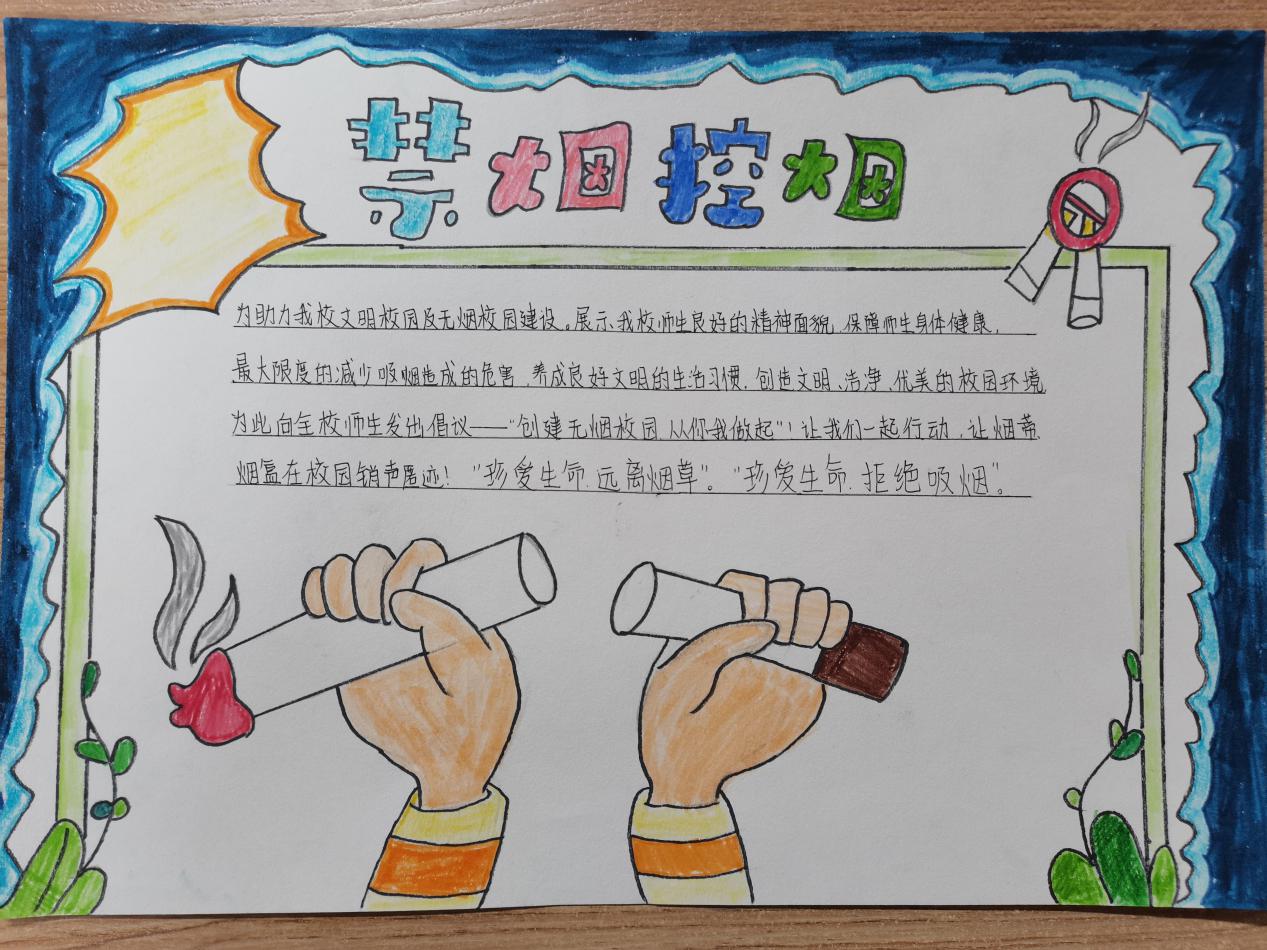 禁烟控烟
为助力我校文明校园及无烟校园建设。展示我校师生良好的精神面貌,保障师生身体健康,
最大限度的减少吸烟造成的危害,养成良好文明的生活习惯,创造文明、洁净、优美的校园环境
为此向全校师生发出倡议——“创建无烟校园,从你我做起”!让我们一起行动,让烟蒂
烟盒在校园销声匿迹!“珍爱生命,远离烟草”。“珍爱生命,拒绝吸烟”。